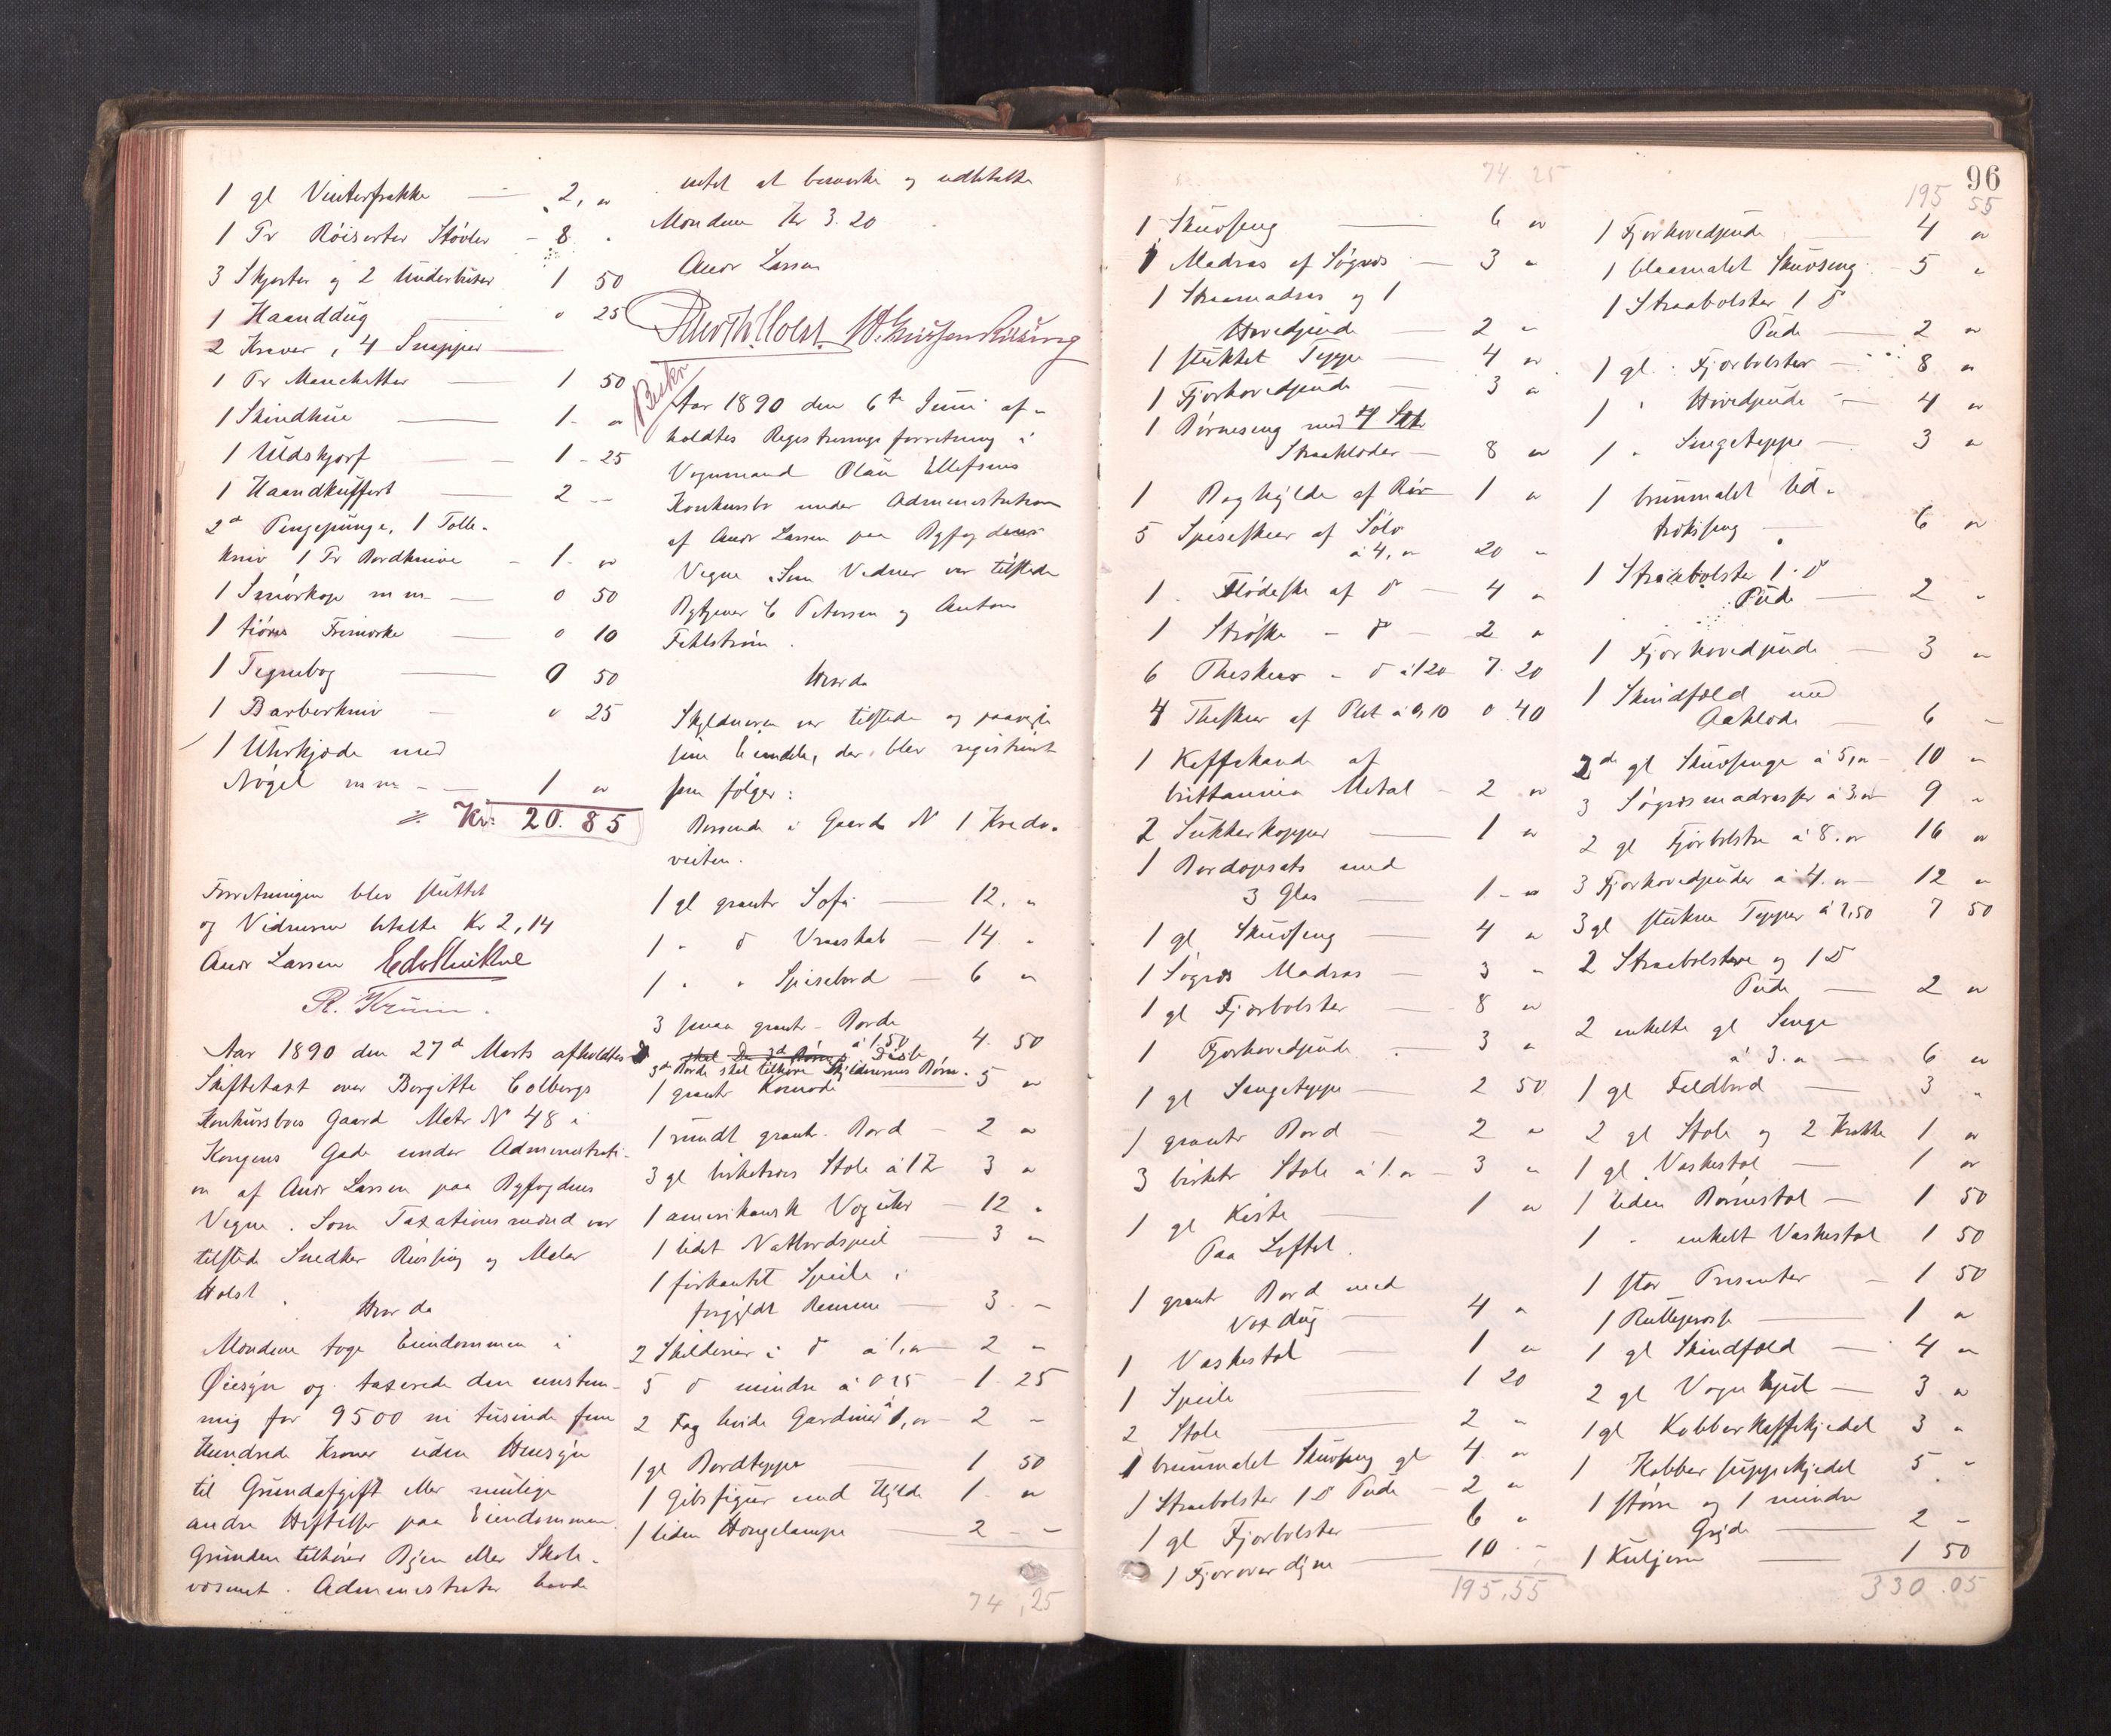 1 gl Vinterfrakke — 2, "
1 Pr Röiserter Støvler - 8 "
3 Skjorter og 2 Underbuxer 1 50
1 Haanddug — " 25
2 Kraver, 4 Snipper —
1 Pr Manchetter — 1 50
1 Skindhue — 1 - "
1 Uldskjærf — 1 - 25
1 Haandkuffert — 2 -
2de Pengepunge, 1 Tolle-
kniv 1 Pr Bordknive - 1 - "
1 Smörkop m m — 0 50
1 tiöres Frimærke — 0 10
1 Tegnebog — 0 50
1 Barberkniv — " 25
1 Uhrkjæde med
Nögel m m — 1 "
Kr: 20.85
Forretningen blev sluttet
og Vidnerne betalte Kr 2,14
Andr Larsen
Aar 1890 den 27d Marts afholdtes
Skiftetaxt over Bergitte Colbergs
Konkursboes Gaard Matr No 48 i
Kongens Gade under Administrati-
on af Andr Larsen paa Byfogdens
Vegne. Som Taxationsmænd var
tilstede Snedker Riising og Maler
Holst.
Hvor da
Mændene toge Eiendommen i
Øiesyn og taxerede den enstem-
mig for 9500 ni tusinde fem
Hundrede Kroner uden Hensyn
til Grundafgift eller mulige
andre Heftelser paa Eiendommen
Grunden tilhører Byen eller Skole-
væsenet. Administrator havde
intet at bemærke og udbetalte
Mændene Kr 3.20
Andr Larsen
Aar 1890 den 6te Juni af-
holdtes Registreringsforretning i
Vognmand Olaus Ellefsens
Konkursbo under Administration
af Andr Larsen paa Byfogdens
Vegne. Som Vidner var tilstede
C Petersen og Anton
Fehlström.
Hvor da
Skyldneren var tilstede og paaviste
sine Eiendele, der blev registreret
som følger:
Boende i Gaard No 1
veiten.
1 gl grantr Sofa — 12. "
1 " d Vraaskab — 14. "
1 " " Spisebord — 6 "
3 smaa grantr - Borde
à 1,50 4. 50
3de Borde skal tilhøre Skyldnerens Børn.
1 grantr Komode 5 "
1 rundt grantr. Bord - 2 "
3 gl birketræs Stole à 1 Kr 3 "
1 amerikansk Vægur — 12 "
1 lidet Natbordspeil — 3 "
1 firkantet Speile i
forgyldt Ramme — 3 -
2 Skilderier i d à 1, " — 2 "
5 d mindre à 0 25 - 1. 25
2 Fag hvide Gardiner à 1, " - 2 -
1 gl Bordteppe — 1 50
1 Gibsfigur med Hylde 1 - "
1 liden Hængelampe — 2 - -
74,25
96
74 25
1 Skuvseng — 6 "
1 Madras af Søgræs — 3 "
1 Straamadras og 1
Hovedpude — 2 "
1 stukket Teppe — 4 "
1 Fjærhovedpude — 3 "
1 Børneseng med 4 Stk
Straaklæder — 8 "
1 Boghylde af Rör 1 "
5 Spiseskeer af Sølv
à 4, " 20 "
1 Flødeske af d — 4 "
1 Ströske - d — 2 "
6 Theskeer - d à 1 20 7. 20
4 Theskeer af Plet à 0,10 0. 40
1 Kaffekande af
brittannia Metal - 2 "
2 Sukkerkopper — 1 "
1 Bordopsats med
3 Glas — 1 - "
1 gl Skuvseng — 4 "
1 Søgræs Madras — 3 "
1 gl Fjærbolster — 8 "
1 Fjærhovedpude — 3 "
1 gl Sengeteppe — 2 50
1 grantr Bord — 2 "
3 birketr Stole à 1. " — 3 "
1 gl Kiste — 1 "
Paa Loftet.
1 grantr Bord med
Voxdug — 4 "
1 Vaskestol — 1 "
1 Speile — 1 20
2 Stole — 2 "
1 brunmalet Skuvseng gl 4 "
1 Straabolster 1 d Pude - 2 "
1 gl Fjærbolster — 6 "
1 Fjæroverdyne — 10 -
195,55
195 55
1 Fjærhovedpude — 4 "
1 blaamalet Skuvseng - 5 "
1 Straabolster 1 d
Pude — 2 "
1 gl. Fjærbolster — 8 "
1 " Hovedpude — 4 "
1 " Sengeteppe — 3 "
1 brunmalet Ud-
trækseng — 6 "
1 Straabolster 1 d
Pude — 2 "
1 Fjærhovedpude — 3 "
1 Skindfæld med
Aaklæde — 6 -
2de gl Skuvsenge à 5, " - 10 "
3 Søgræsmadrasser à 3. " 9 "
2 gl Fjærbolstre à 8. " 16 "
3 Fjærhovedpuder à 4. " — 12 "
3 gl stukne Tepper à 2,50 7 50
2 Straabolstere og 1 D
Pude — 2 "
2 enkelte gl Senge
à 3. " — 6 "
1 gl Feldbord — 3 "
2 gl Stole og 2 Krakke 1 "
1 gl Vaskestol — 1 "
1 liden Børnestol — 1 50
1 " enkelt Vaskestol 1 50
1 stor Presenter — 1 50
1 — 1 "
1 gl Skindfæld — 4 "
2 gl Vogn hjul — 3 "
1 gl Kobberkaffekjedel 3 "
1 Kobber suppekjedel 5 "
1 større og 1 mindre
Gryde — 2 -
1 — 1 50
330.05